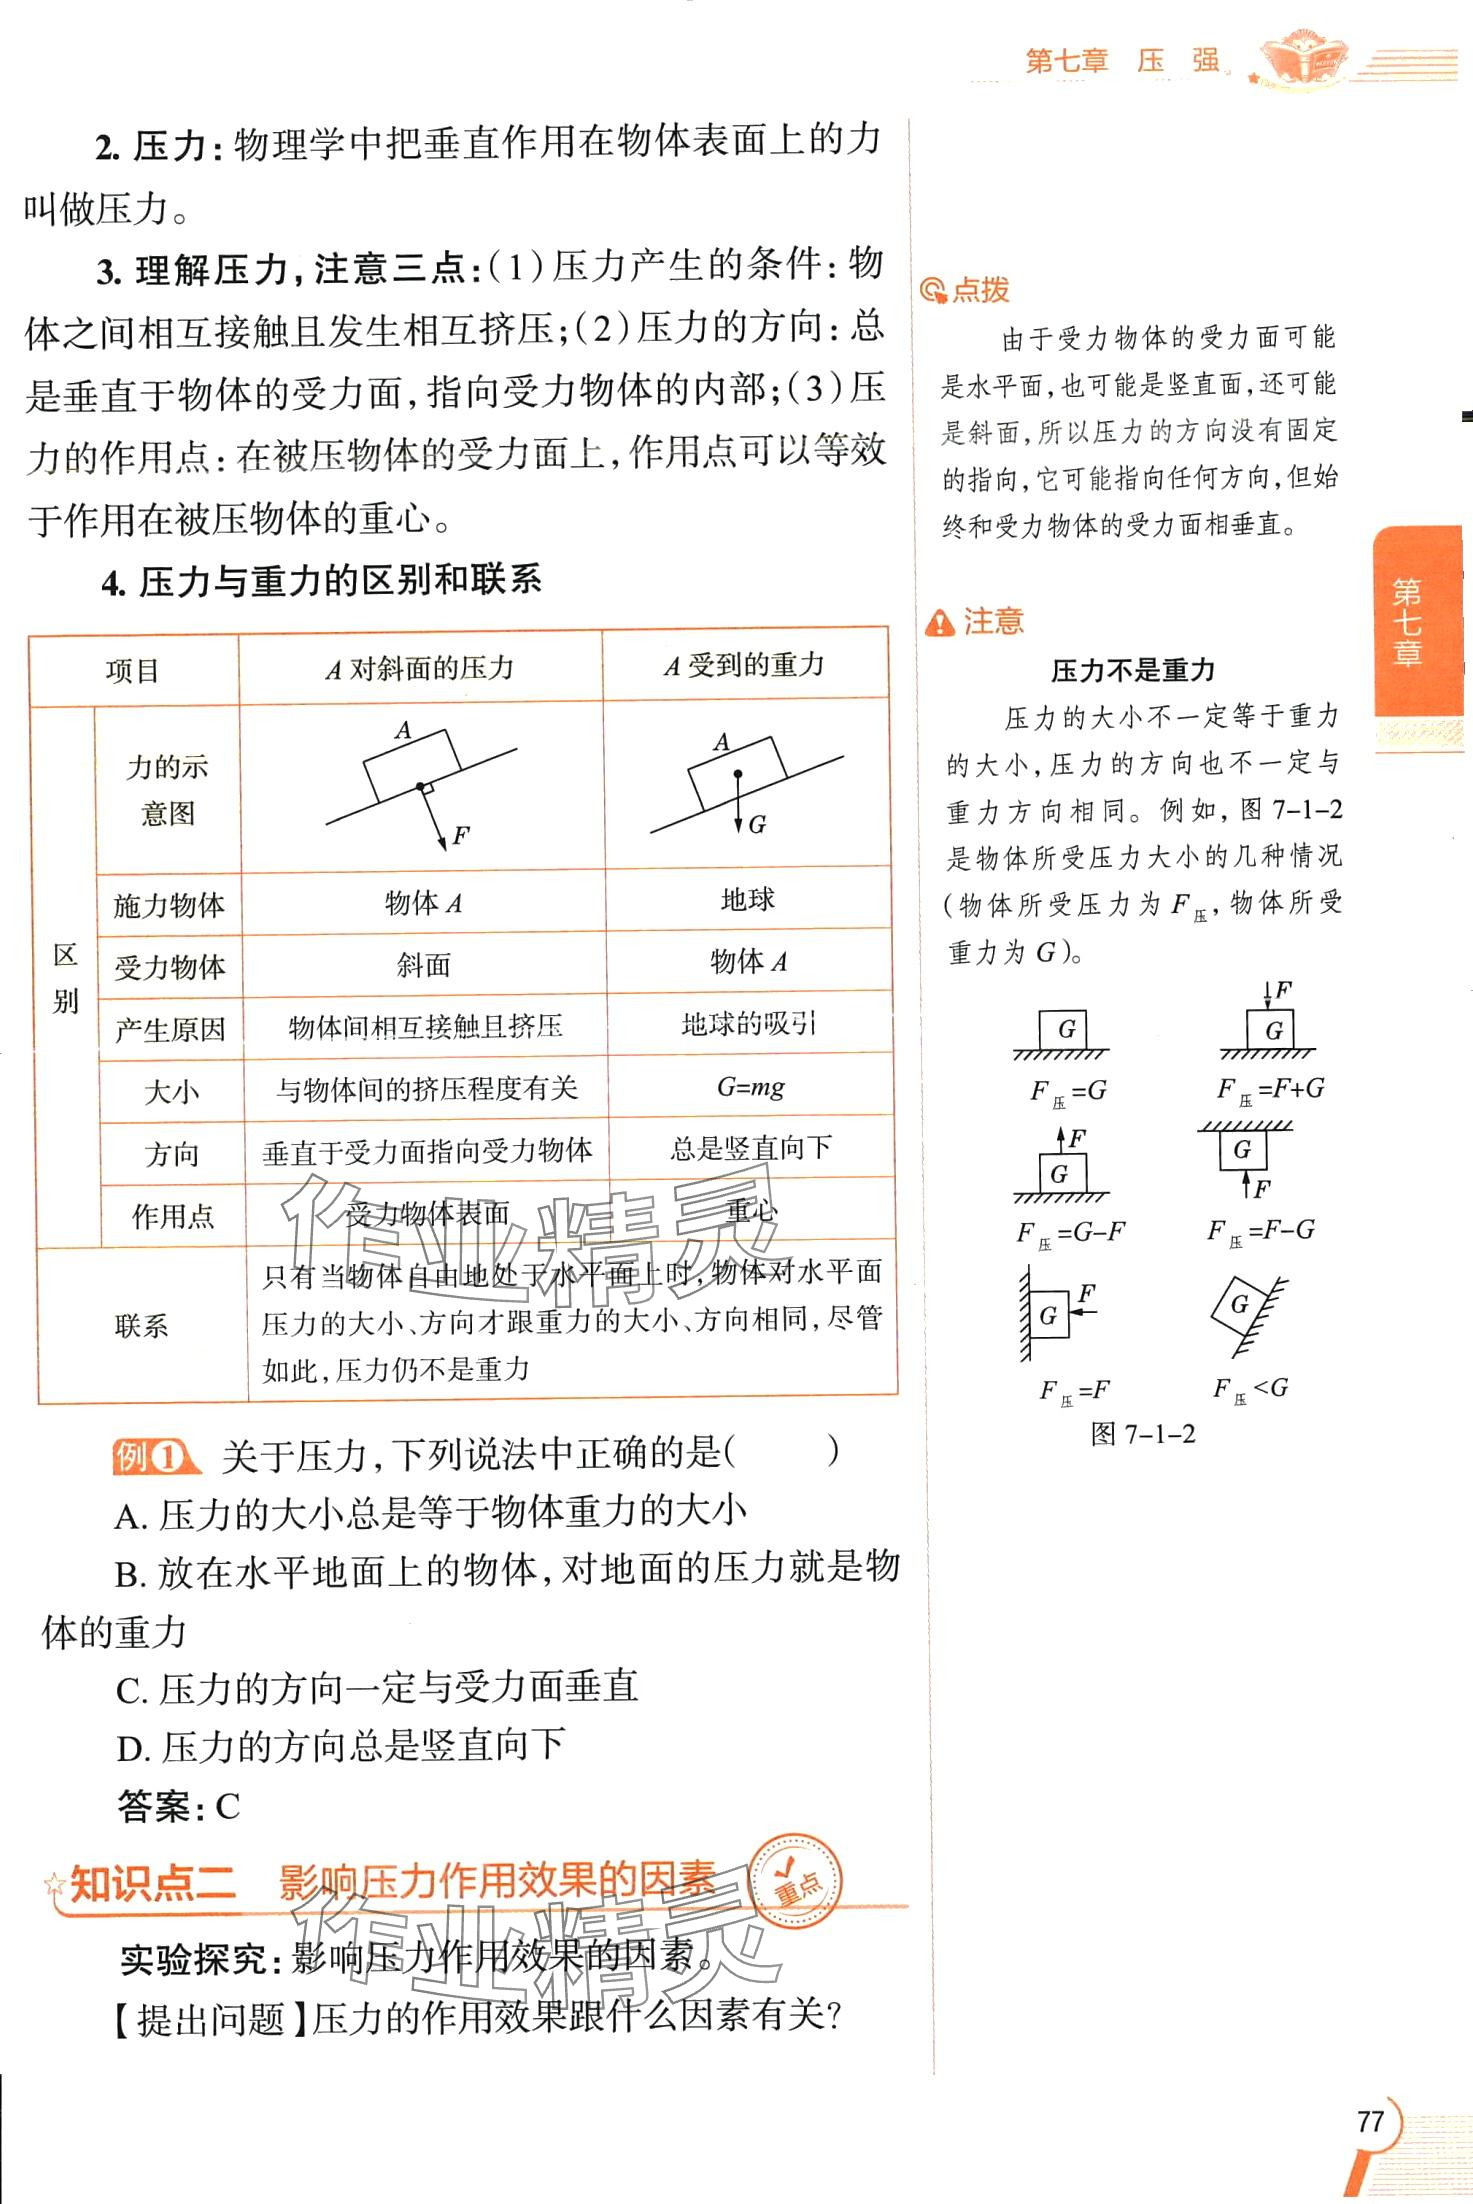 第七章 压 强
2. 压力：物理学中把垂直作用在物体表面上的力
叫做压力。
3. 理解压力，注意三点：(1)压力产生的条件：物
体之间相互接触且发生相互挤压；(2)压力的方向：总
是垂直于物体的受力面，指向受力物体的内部；(3)压
力的作用点：在被压物体的受力面上，作用点可以等效
于作用在被压物体的重心。
4. 压力与重力的区别和联系
项目 A对斜面的压力 A受到的重力
区别
力的示
意图
A
F
A
G
施力物体 物体A 地球
受力物体 斜面 物体A
产生原因 物体间相互接触且挤压 地球的吸引
大小 与物体间的挤压程度有关 G=mg
方向 垂直于受力面指向受力物体 总是竖直向下
作用点 受力物体表面 重心
联系
只有当物体自由地处于水平面上时，物体对水平面
压力的大小、方向才跟重力的大小、方向相同，尽管
如此，压力仍不是重力
例1 关于压力，下列说法中正确的是( )
A. 压力的大小总是等于物体重力的大小
B. 放在水平地面上的物体，对地面的压力就是物
体的重力
C. 压力的方向一定与受力面垂直
D. 压力的方向总是竖直向下
答案：C
知识点二 影响压力作用效果的因素
重点
实验探究：影响压力作用效果的因素。
【提出问题】压力的作用效果跟什么因素有关？
点拨
由于受力物体的受力面可能
是水平面，也可能是竖直面，还可能
是斜面，所以压力的方向没有固定
的指向，它可能指向任何方向，但始
终和受力物体的受力面相垂直。
注意
压力不是重力
压力的大小不一定等于重力
的大小，压力的方向也不一定与
重力方向相同。例如，图7-1-2
是物体所受压力大小的几种情况
(物体所受压力为F压，物体所受
重力为G)。
G
F
G
F压=G F压=F+G
F
G
G
F
F压=G-F F压=F-G
G
F
G
F压=F F压<G
图7-1-2
第七章
77
作业精灵
作业精灵